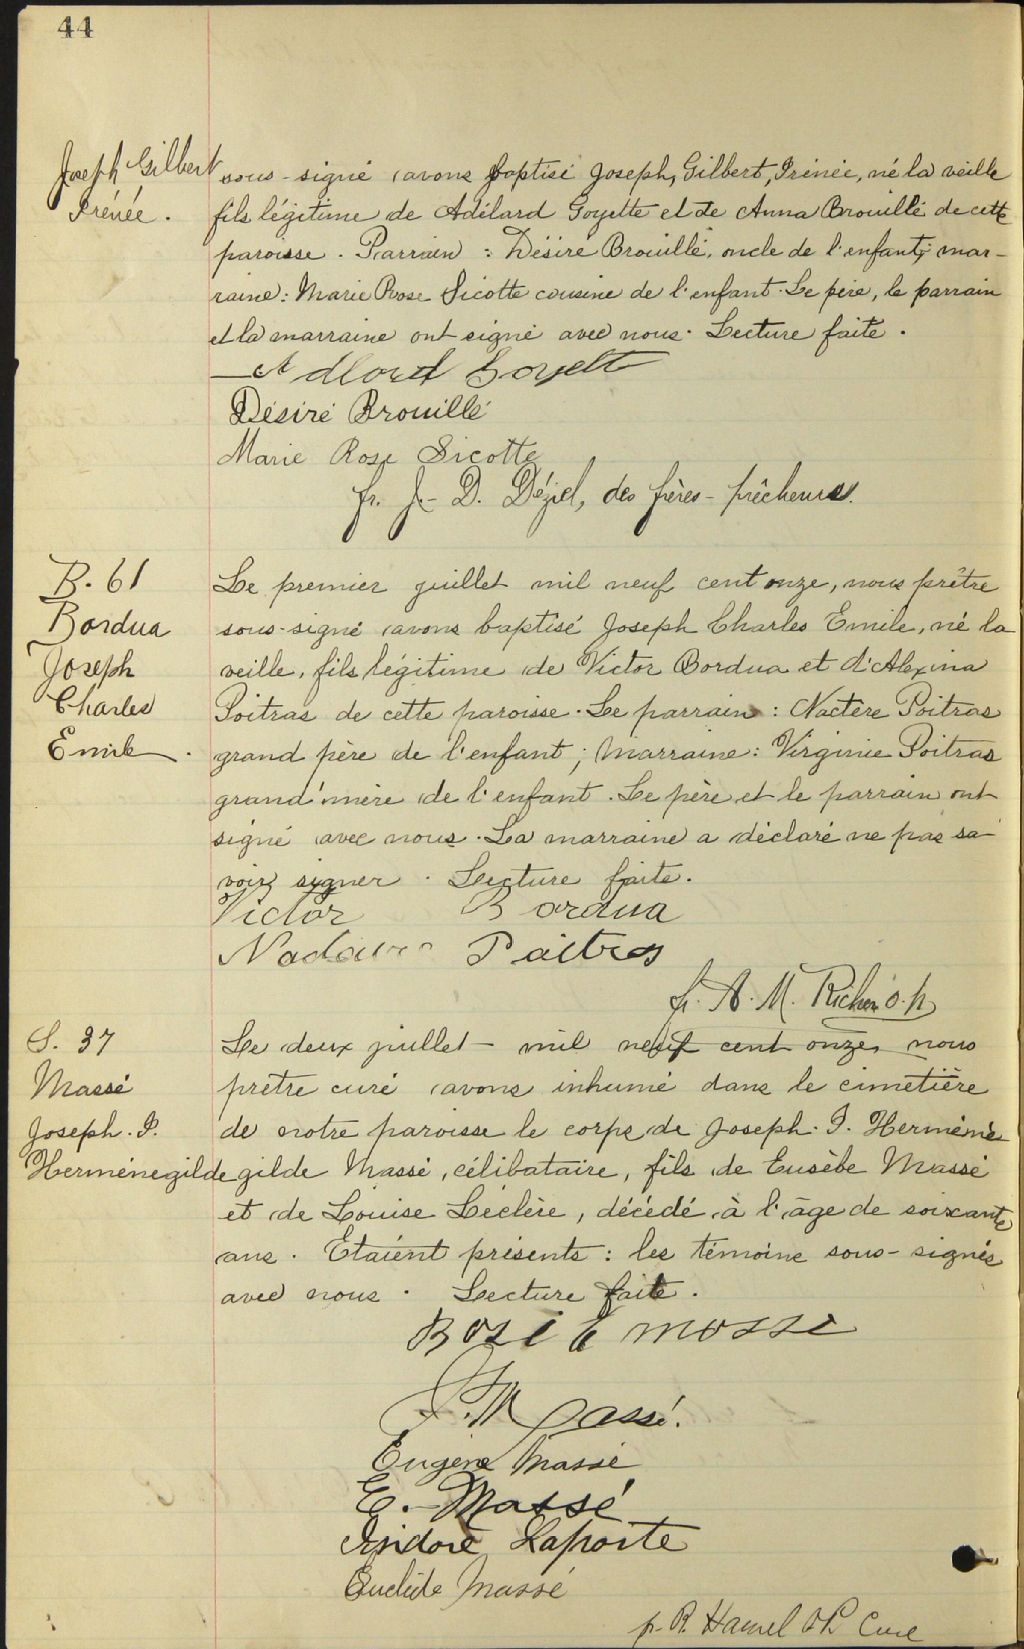 44
Joseph Gilbert
Irénée.
sous-signé avons baptisé Joseph, Gilbert, Irénée, né la veille
fils légitime de Adélard Goyette et de Anna Brouillé de cette
paroisse. Parrain : Désiré Brouillé, oncle de l'enfant; mar-
raine: Marie Rose Sicotte cousine de l'enfant. Le père, le parrain
et la marraine ont signé avec nous. Lecture faite.
Adlord Goyett
Désiré Brouillé
Marie Rose Sicotte
fr. J.-D. Déziel, des frères-prêcheurs.
B. 61
Bordua
Joseph
Charles
Emile.
Le premier juillet mil neuf cent onze, nous prêtre
sous-signé avons baptisé Joseph Charles Emile, né la
veille, fils légitime de Victor Bordua et d'Alexina
Poitras de cette paroisse. Le parrain : Nactère Poitras
grand père de l'enfant ; Marraine: Virginie Poitras
grand'mère de l'enfant. Le père et le parrain ont
signé avec nous. La marraine a déclaré ne pas sa-
voir signer. Lecture faite.
Victor Bordua
Poitros
fr. A. M. Richer o.p.
S. 37
Massé
Joseph. I.
Herménegilde
Le deux juillet mil neuf cent onze, nous
prêtre curé avons inhumé dans le cimetière
de notre paroisse le corps de Joseph. I. Herméné-
gilde Massé, célibataire, fils de Eusèbe Massé
et de Louise Léclère, décédé à l'âge de soixante
ans. Etaient présents : les témoins sous-signés
avec nous. Lecture faite.
Rose E Masse
Massé.
Eugène Massé
E. Massé
Isidore Laporte
Euclide Massé
p. R. Hamel OP Curé